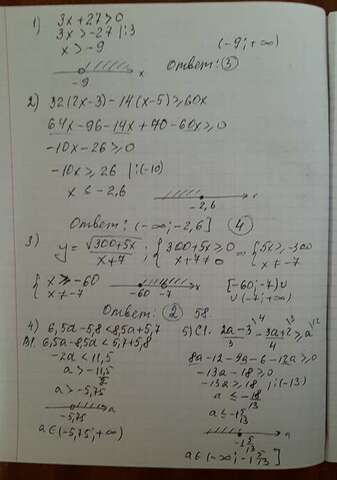 1) 3x + 27 > 0
3x > -27 |:3
x > -9
(-9; +∞)
-9 x
Ответ: ③
2) 32(2x-3) - 14(x-5) ≥ 60x
64x - 96 - 14x + 70 - 60x ≥ 0
-10x - 26 ≥ 0
-10x ≥ 26 |:(-10)
x ≤ -2,6
-2,6 x
Ответ: (-∞; -2,6] ④
3) y = √300+5x / x+7 ; { 300+5x ≥ 0 x+7≠0 = { 5x ≥ -300 x ≠ -7
{ x ≥ -60 x ≠ -7
-60 -7
[-60; -7) ∪
∪ (-7; +∞)
Ответ: ② 58.
4) 6,5a - 5,8 < 8,5a + 5,7
B1. 6,5a - 8,5a < 5,7 + 5,8
-2a < 11,5
a > -11,5/2
a > -5,75
-5,75 a
a ∈ (-5,75; +∞)
5) C1. 2a-3/3 - 3a+2/4 ≥ a
8a - 12 - 9a - 6 - 12a ≥ 0
-13a - 18 ≥ 0
-13a ≥ 18 |:(-13)
a ≤ -18/13
a ≤ -1 5/13
-1 5/13 a
a ∈ (-∞; -1 5/13]